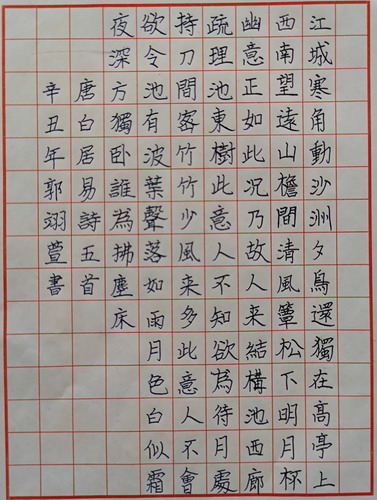 江城寒角動沙洲夕鳥還獨在高亭上
西南望遠山檐間清風簟松下明月杯
幽意正如此况乃故人来結構池西廊
疏理池東樹此意人不知欲為待月處
持刀間客竹竹少風来多此意人不會
欲令池有波葉聲落如雨月色白似霜
夜深方獨卧誰為拂塵床
唐白居易詩五首
辛丑年郭翊萱書